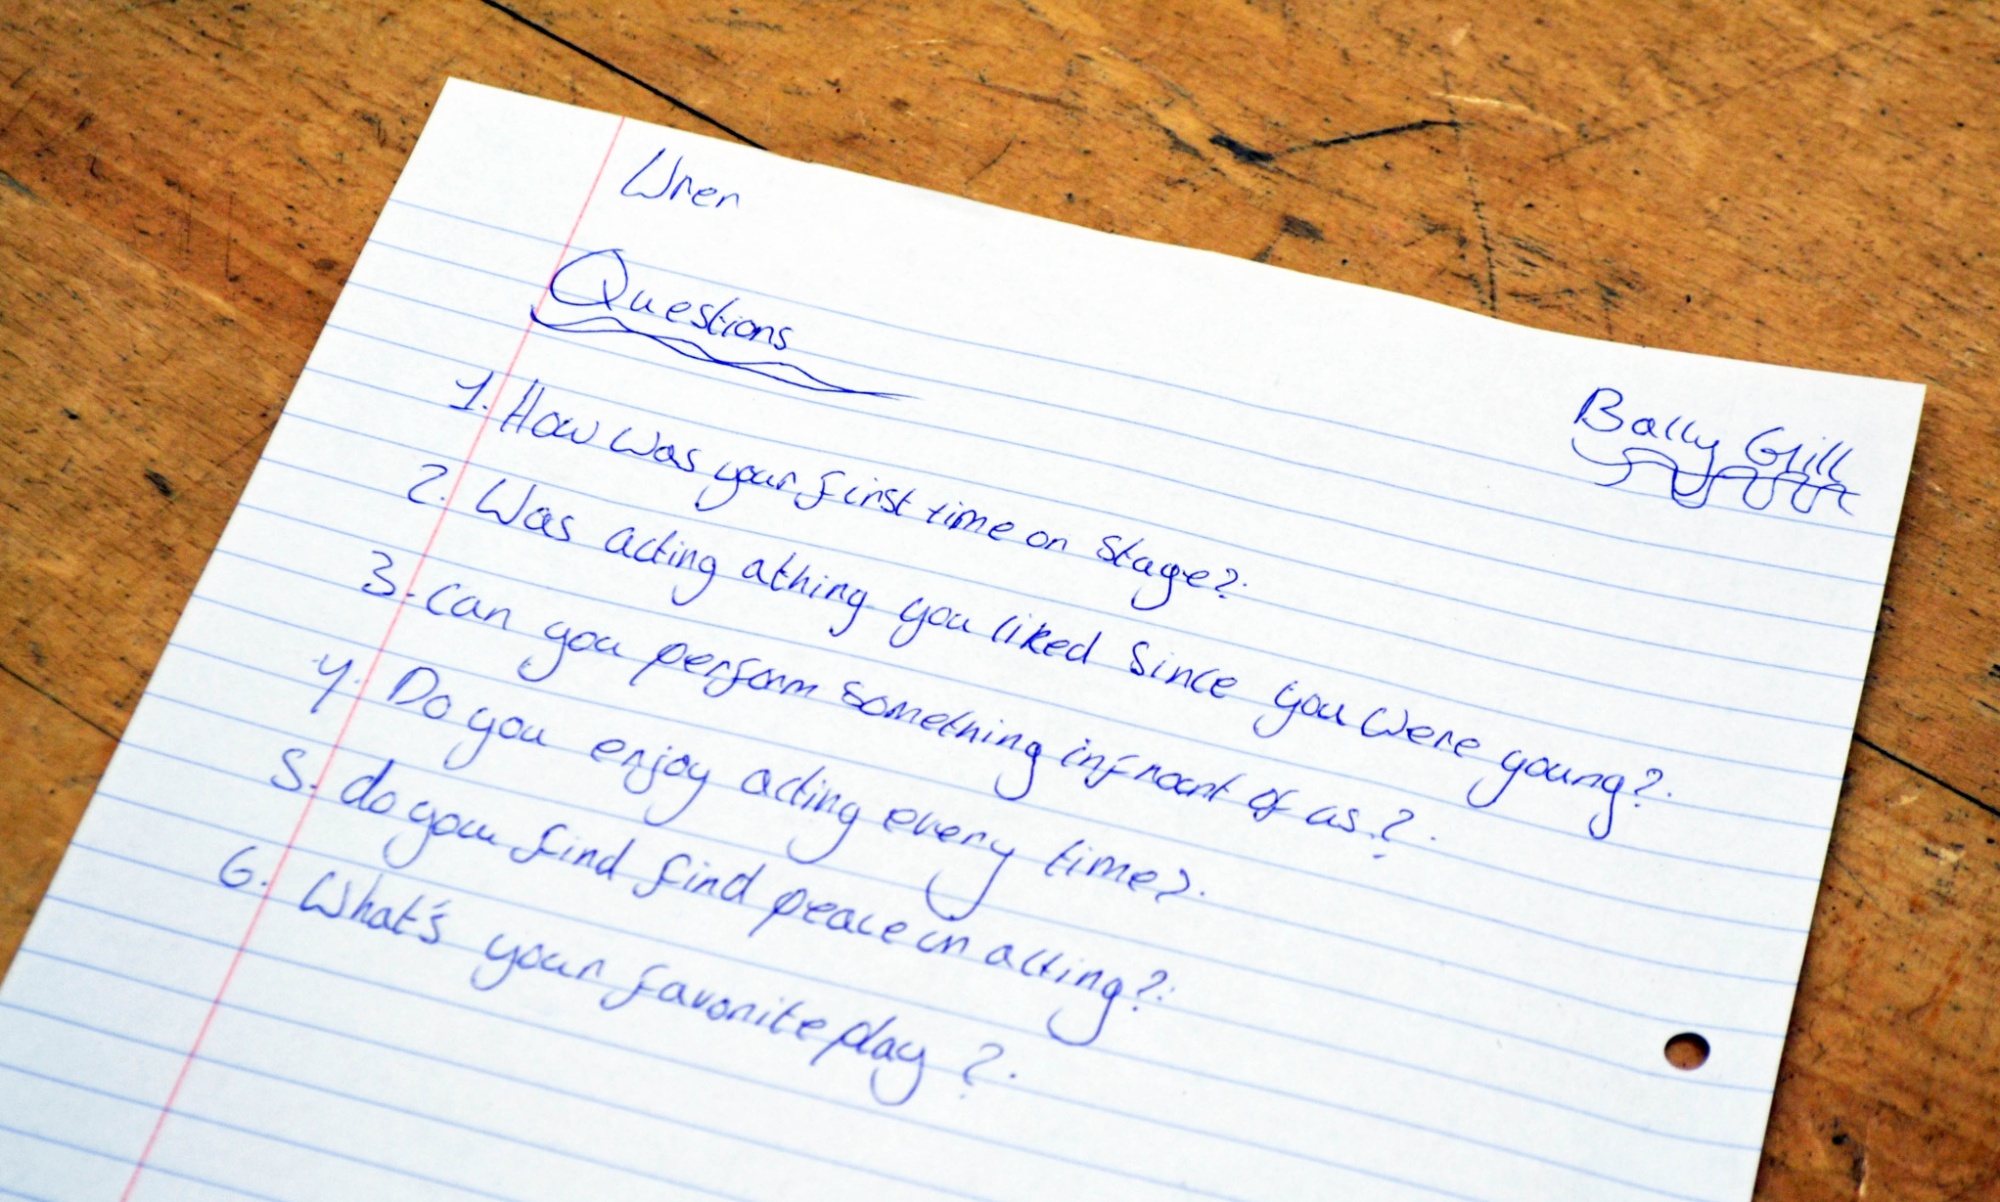 Wren
Questions
Bally Gill
1. How was your first time on stage?
2. Was acting a thing you liked since you were young?
3. Can you perform something infroant of us?
4. Do you enjoy acting every time?
5. do you find find peace in acting?
6. What's your favorite play?